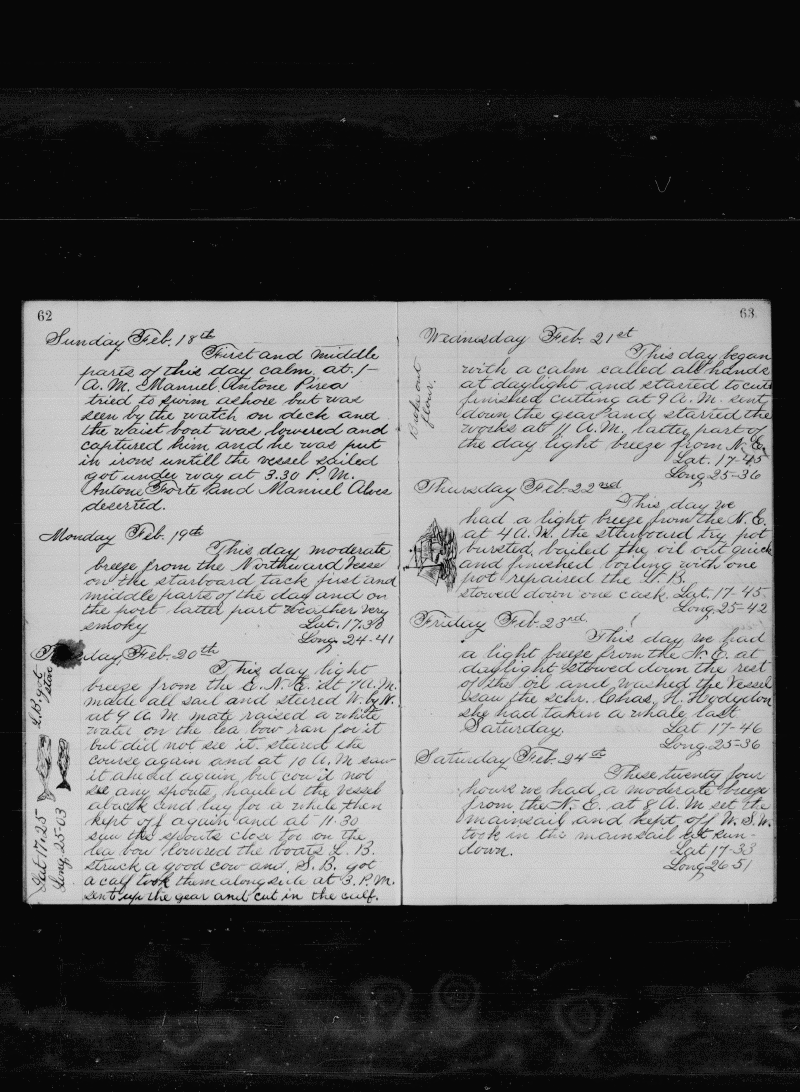 62
Sunday Feb. 18th
First and middle
parts of this day calm at 1-
A. M. Manuel Antone Pirea
tried to swim ashore but was
seen by the watch on deck and
the waist boat was lowered and
captured him and he was put
in irons untill the vessel sailed
got under way at 3.30 P. M.
Antone Forte and Manuel Alves
deserted.
Monday Feb. 19th
This day moderate
breeze from the Northward Vessel
on the starboard tack first and
middle parts of the day and on
the port latter part weather very
smoky Lat. 17.38
Long. 24-41
day, Feb. 20th
This day light
breeze from the E. N. E. at 7 A. M.
made all sail and steered W. by N.
at 9 A. M. mate raised a white
water on the lea bow ran for it
but did not see it. steered the
course again and at 10 A. M. saw
it ahead again, but cou'd not
see any spouts, hauled the vessel
aback and lay for a while then
kept off again and at 11.30
saw the spouts close too on the
lea bow lowered the boats L. B.
struck a good cow and, S. B. got
a calf took them alongside at 3. P. M.
sent up the gear and cut in the calf.
S. B. got
stove
Lat 17.25
Long. 25-03
63
Wednesday Feb. 21st
This day began
with a calm called all hands
at daylight and started to cut
finished cutting at 9 A. M. sent
down the gear and started the
works at 11 A. M. latter part of
the day light breeze from N. E.
Lat. 17-45
Long 25-36
Broke out
flour.
Thursday Feb. 22nd
This day we
had a light breeze from the N. E.
at 4 A. M. the starboard try pot
bursted, bailed the oil out quick
and finished boiling with one
pot repaired the L. B.
stowed down one cask Lat. 17-45
Long 25-42
Friday Feb. 23rd
This day we had
a light breeze from the N. E. at
daylight stowed down the rest
of the oil and washed the Vessel
saw the schr.
she had taken a whale last
Saturday. Lat 17-46
Long. 25-36
Saturday Feb. 24th
These twenty four
hours we had a moderate breeze
from the N. E. at 8 A. M. set the
mainsail and kept off W. S. W.
took in the mainsail at sun-
down. Lat 17-33
Long 26-51